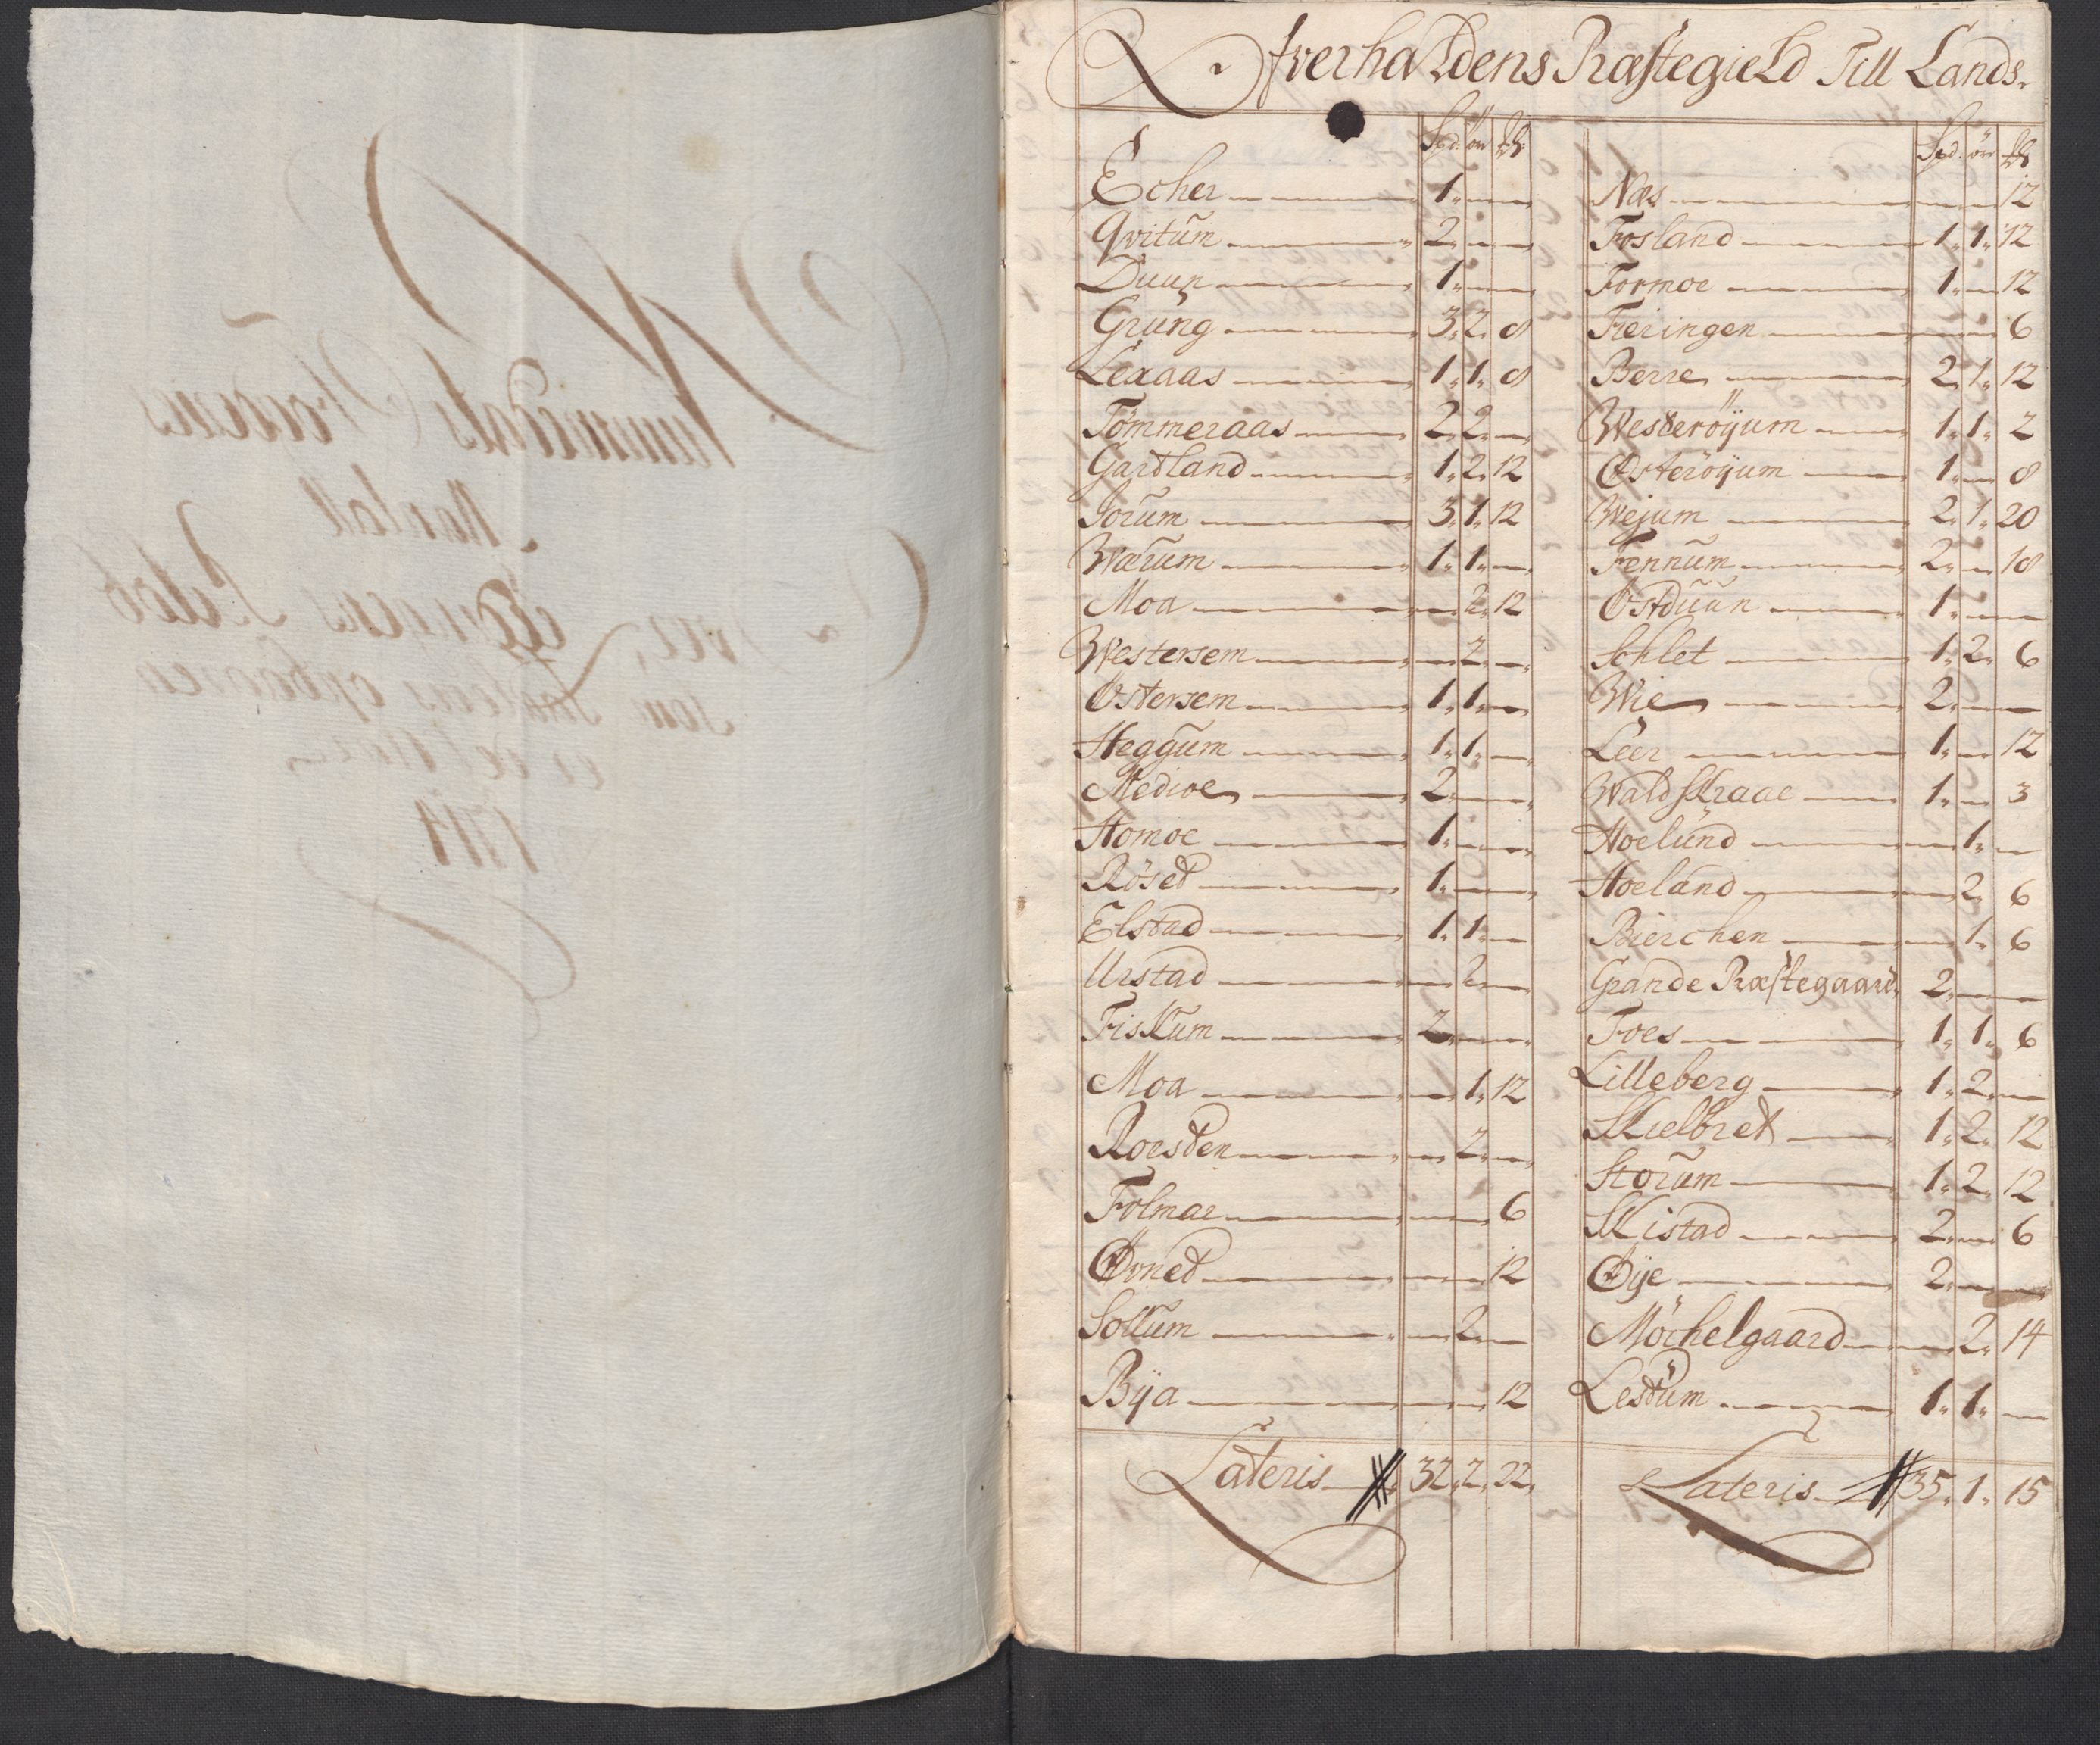 Ofverhaldens Præstegield Till Lands.
Spd: ör ℔:
Echer 1.
Qvitum 2.
Duun 1.
Grüng 3. 2. 8
Lexaas 1. 1. 8
Tömmeraas 2. 2.
Gartland 1. 2. 12
Sorum 3. 1. 12
Wærum 1. 1.
Moa 2. 12
Westersem 2.
Östersem 1. 1.
Heggum 1. 1.
Medioe 2.
Homoe 1.
Röset 1.
Elstad 1. 1.
Urstad 2
Fiskum 2.
Moa 1. 12
Roesten 2.
Folmar 6
Øvned 12
Sollum 2
Bÿa 12
Lateris 32. 2. 22.
Spd. ör ℔
Næs 12
Fosland 1. 1. 12
Formoe 1. 12
Fieringen 6
Berre 2. 1. 12
Westeröÿum 1. 1. 2
Østeröÿum 1. 8
Wejum 2. 1. 20
Tennum 2. 18
Östduun 1.
Schlet 1. 2. 6
Wie 2.
Leer 1. 12
Wald skraae 1. 3
Hoelund 1.
Hoeland 2. 6
Bierchen 1. 6
Grande Præstegaard 2.
Foes 1. 1. 6
Lilleberg 1. 2.
Skielbret 1. 2. 12
Storum 1. 2. 12
Skistad 2. 6
Øÿe 2.
Möchelgaard 2. 14
Lestum 1. 1.
Lateris 35. 1. 15